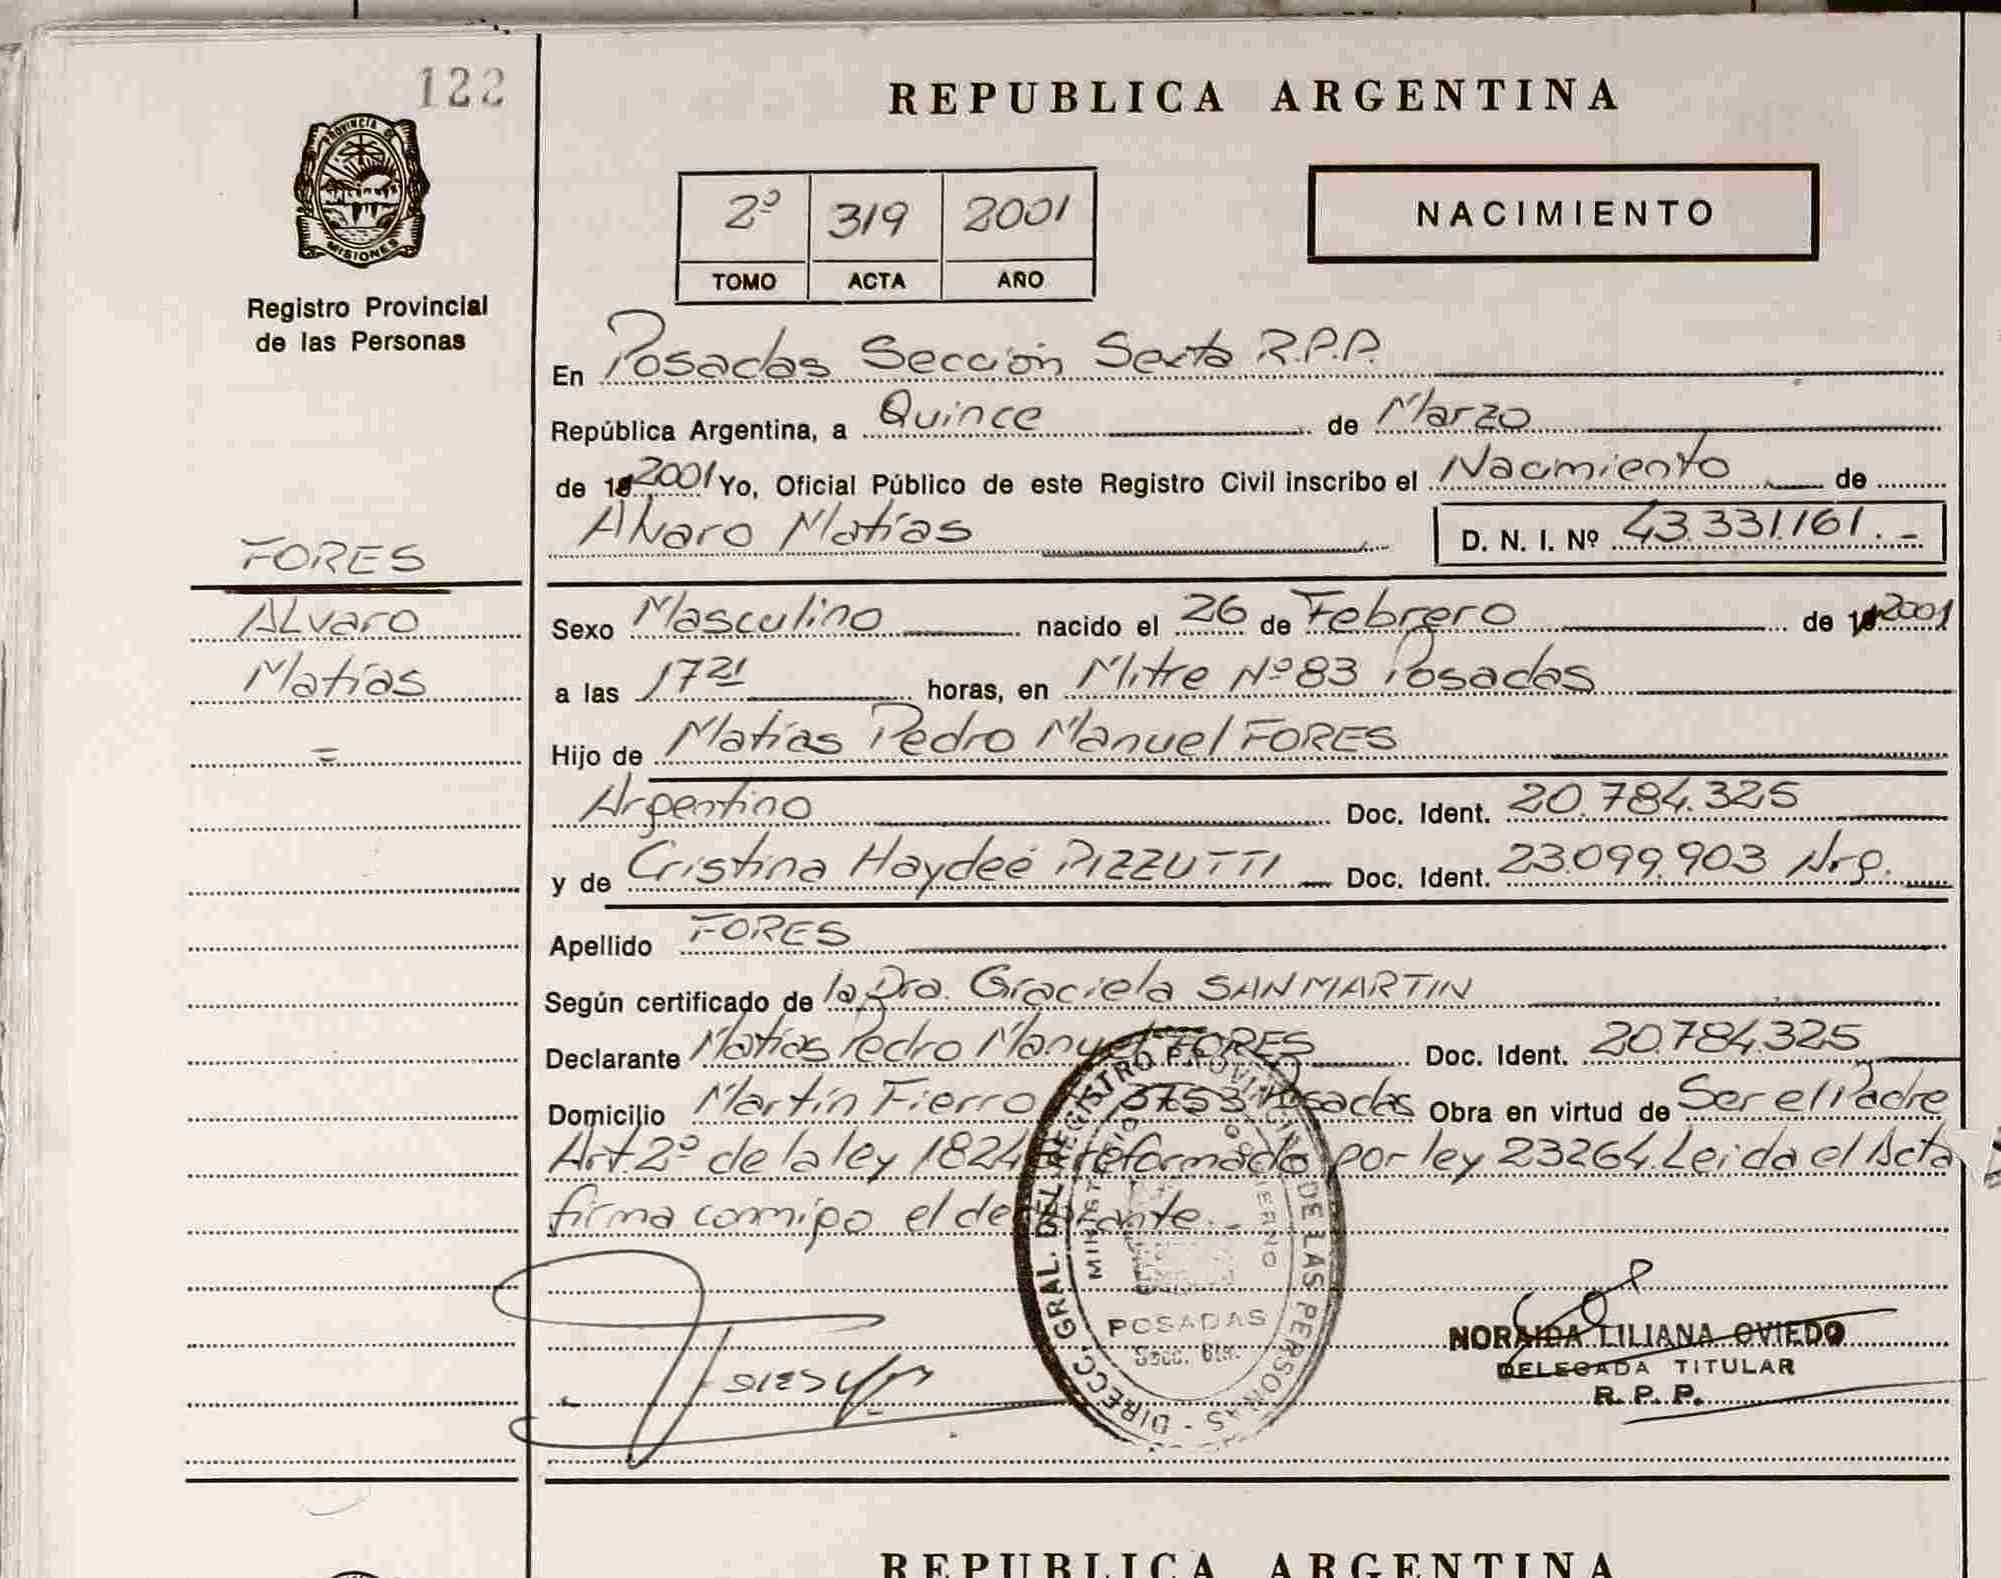 122
REPUBLICA ARGENTINA
PROVINCIA DE
MISIONES
Registro Provincial
de las Personas
2º 319 2001
TOMO ACTA AÑO
NACIMIENTO
En Posadas Sección Sexta R.P.P.
República Argentina, a Quince de Marzo
de 2001 Yo, Oficial Público de este Registro Civil inscribo el Nacimiento de
Alvaro Matías D. N. I. Nº 43.331.161.-
FORES
Alvaro
Matías
=
Sexo Masculino nacido el 26 de Febrero de 2001
a las 17 21 horas, en Mitre Nº 83 Posadas
Hijo de Matías Pedro Manuel FORES
Argentino Doc. Ident. 20.784.325
y de Cristina Haydeé PIZZUTTI Doc. Ident. 23.099.903 Arg.
Apellido FORES
Según certificado de la Dra. Graciela SANMARTIN
Declarante Matías Pedro Manuel FORES Doc. Ident. 20.784.325
Domicilio Martín Fierro 3753 Posadas Obra en virtud de Ser el Padre
Art. 2º de la ley 1824 reformado por ley 23264. Leida el Acta
firma conmigo el declarante.-
DIRECC. GRAL. DEL REGISTRO PROVINCIAL DE LAS PERSONAS -
MINISTERIO GOBIERNO
POSADAS
Secc. 6ta.
NORAIDA LILIANA OVIEDO
DELEGADA TITULAR
R. P. P.
REPUBLICA ARGENTINA